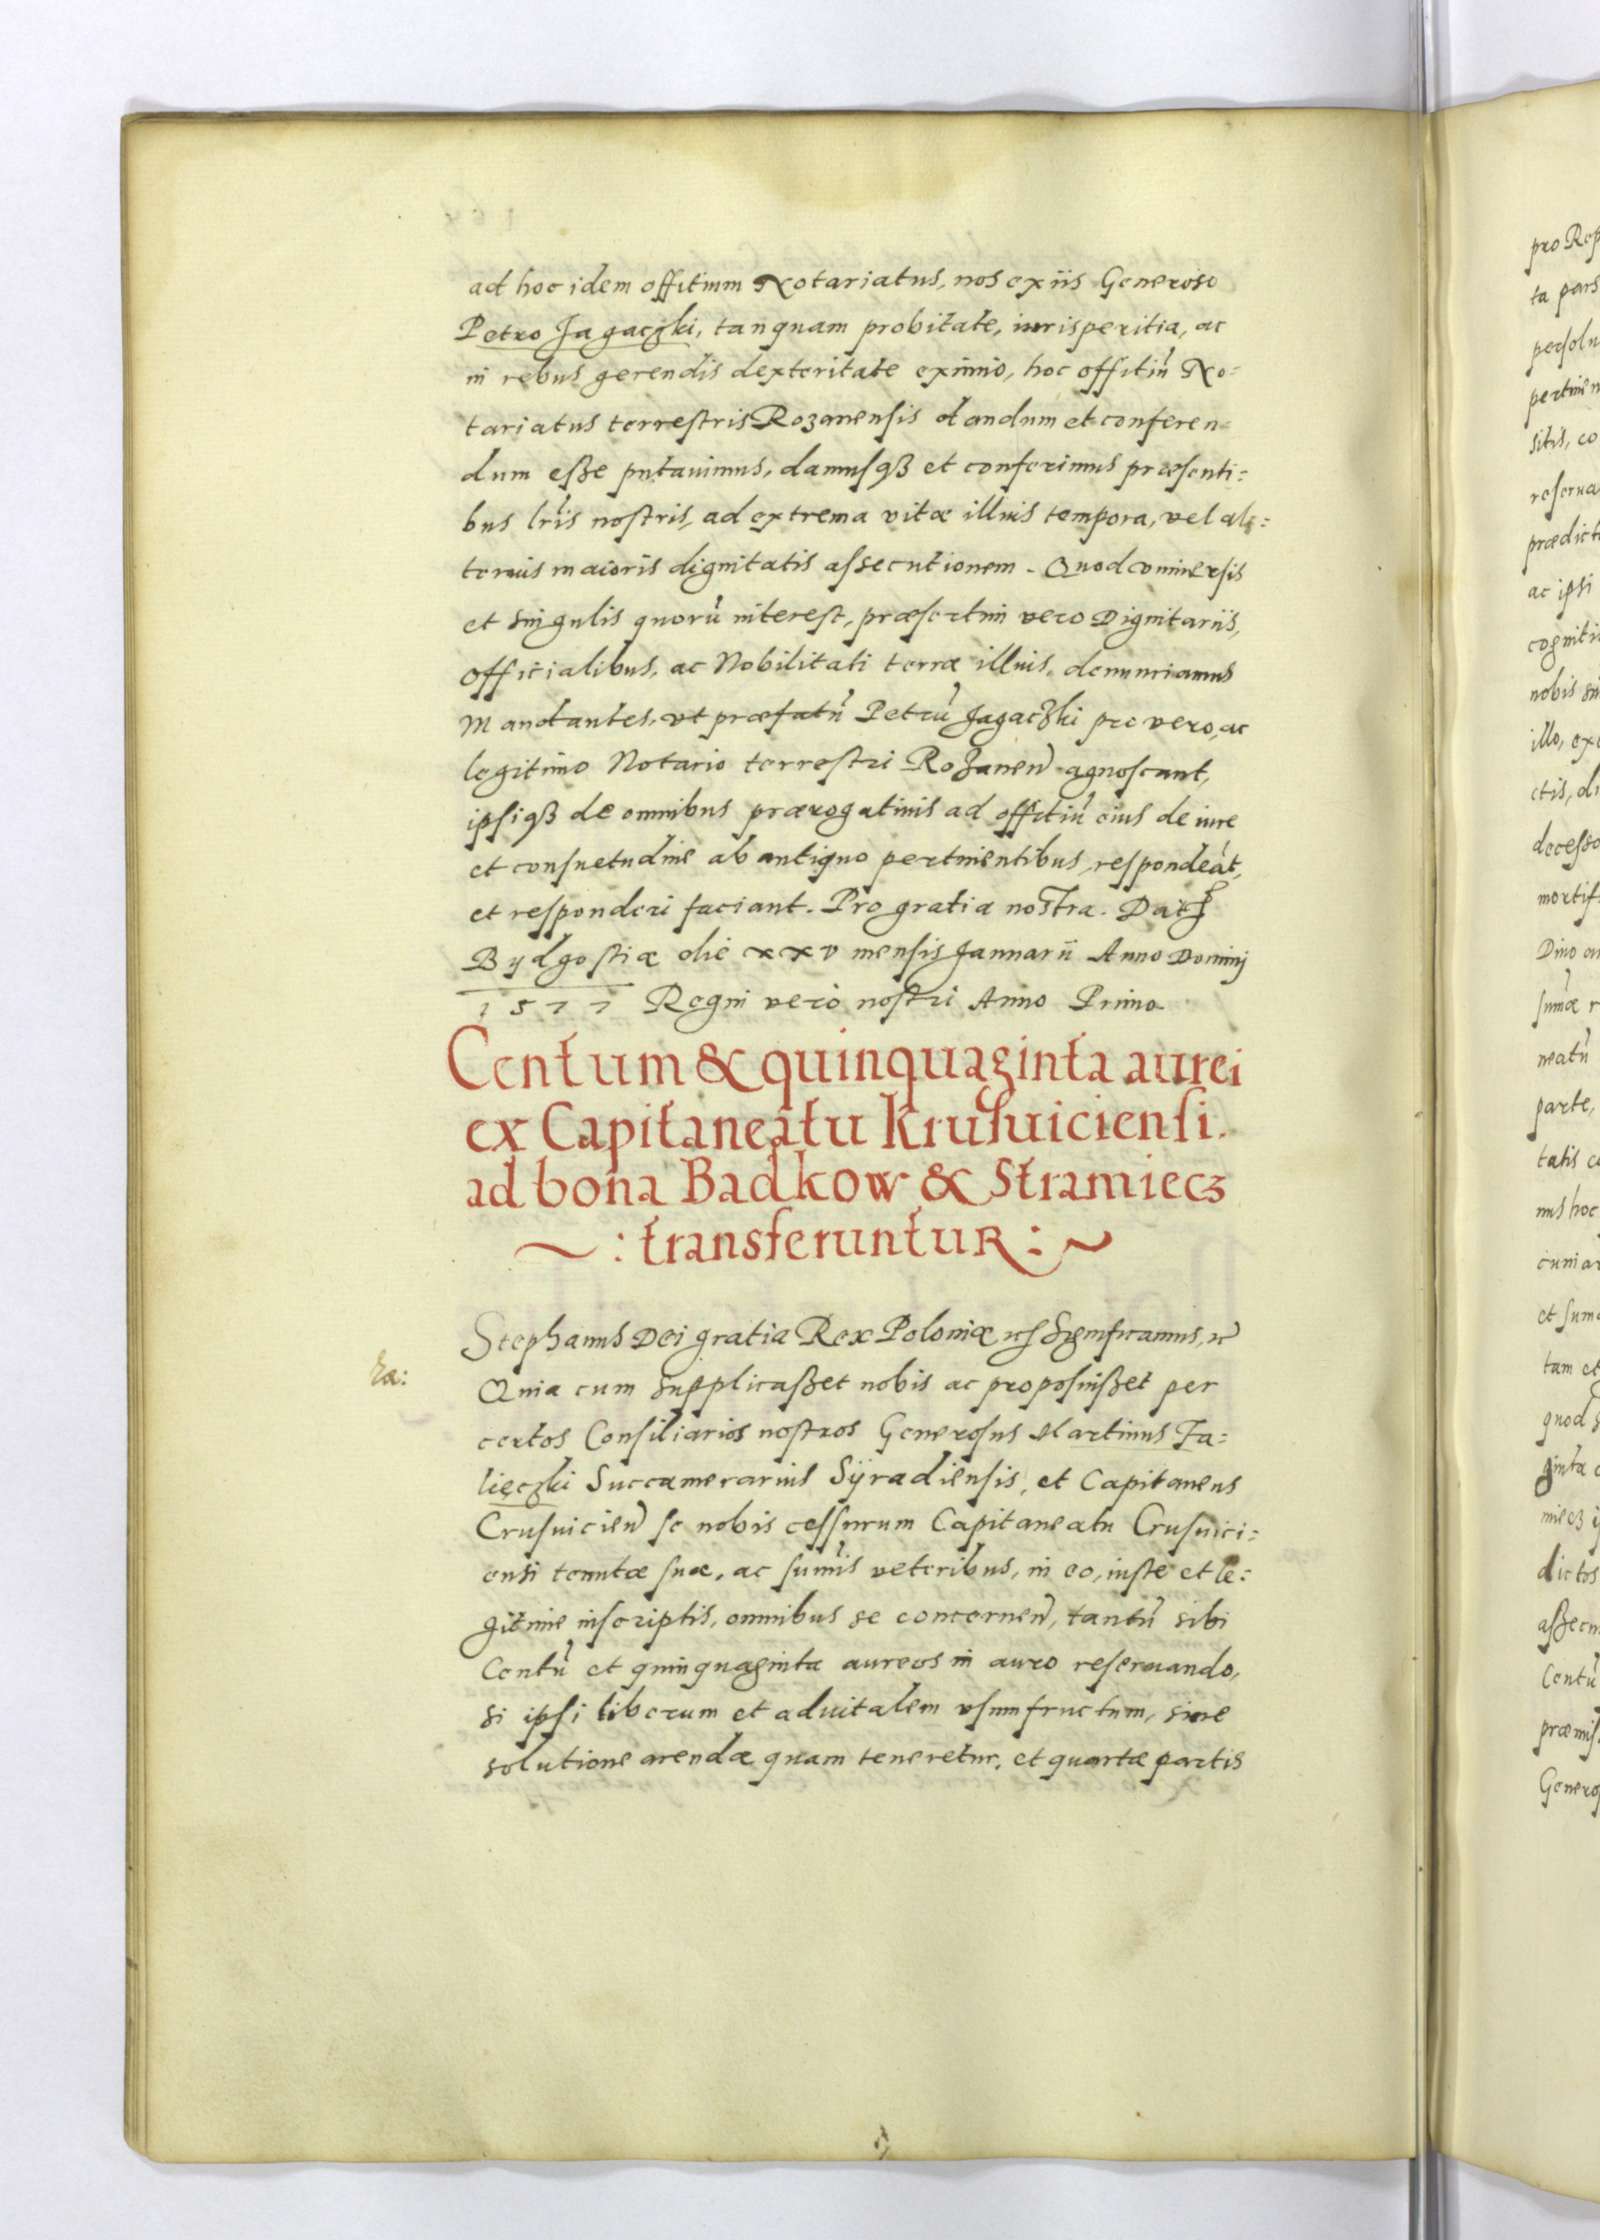 ad hoc idem offitium Notariatus, nos ex iis Generoso
Petro Jagaczki, tanquam probitate, iurisperitia, ac
in rebus gerendis dexteritate eximio, hoc offitiũ No=
tariatus terrestris Rozanensis dandum et conferen=
dum esse putavimus, damusqȝ et conferimus præsenti=
bus lr̃is nostris, ad extrema vitæ illius tempora, vel al=
terius maioris dignitatis assecutionem. Quod vniuersis
et singulis quorũ interest, præsertim vero Dignitariis,
Officialibus, ac Nobilitati terræ illius, denunciamus
Mandantes, vt præfatũ Petrũ Jagaczki pro vero, ac
legitimo Notario terrestri Rozaneñ agnoscant,
ipsiqȝ de omnibus prærogatiuis ad offitiũ eius de iure
et consuetudine ab antiquo pertinentibus, respondeãt,
et responderi faciant. Pro gratia nostra. Dat
Bydgostiæ die xxv mensis Januarii Anno Domini
1577 Regni vero nostri Anno Primo
Centum & quinquaginta aurei
ex Capitaneatu Krusuiciensi.
ad bona Badkow & Stramiecz
~ : transferuntur : ~
Stephanus Dei gratia Rex Poloniæ, etc Significamus, etc
Quia cum supplicasset nobis ac proposuisset per
certos Consiliarios nostros Generosus Martinus Fa=
lięczki Succamerarius Syradiensis, et Capitaneus
Crusuicieñ se nobis cessurum Capitaneatu Crusuici=
ensi tenutæ suæ, ac sum̃is veteribus, in eo, iuste et le=
gitime inscriptis, omnibus se concerneñ, tantũ sibi
Centũ et quinquaginta aureos in auro reseruando,
si ipsi liberum et aduitalem vsumfructum, sine
solutione arendæ quam teneretur, et quartæ partis
pro Rep
ta pars
persolu
pertinen
sitis, co
reserua
prædict
ac ipsi
cogniti
nobis su
illo, ex
ctis, di
decesso
mortif
Dino
sum̃æ r
neatũ
parte,
tatis c
mus hoc
cunia
et sum
tam et
quod
ginta
miecz
dictos
assecu
Centũ
præmis
Genero